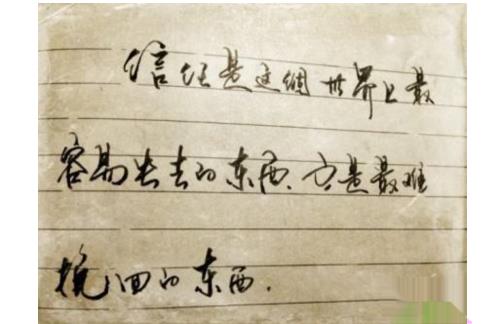 信任是这個世界上最
容易失去的东西、亦是最难
挽回的东西.